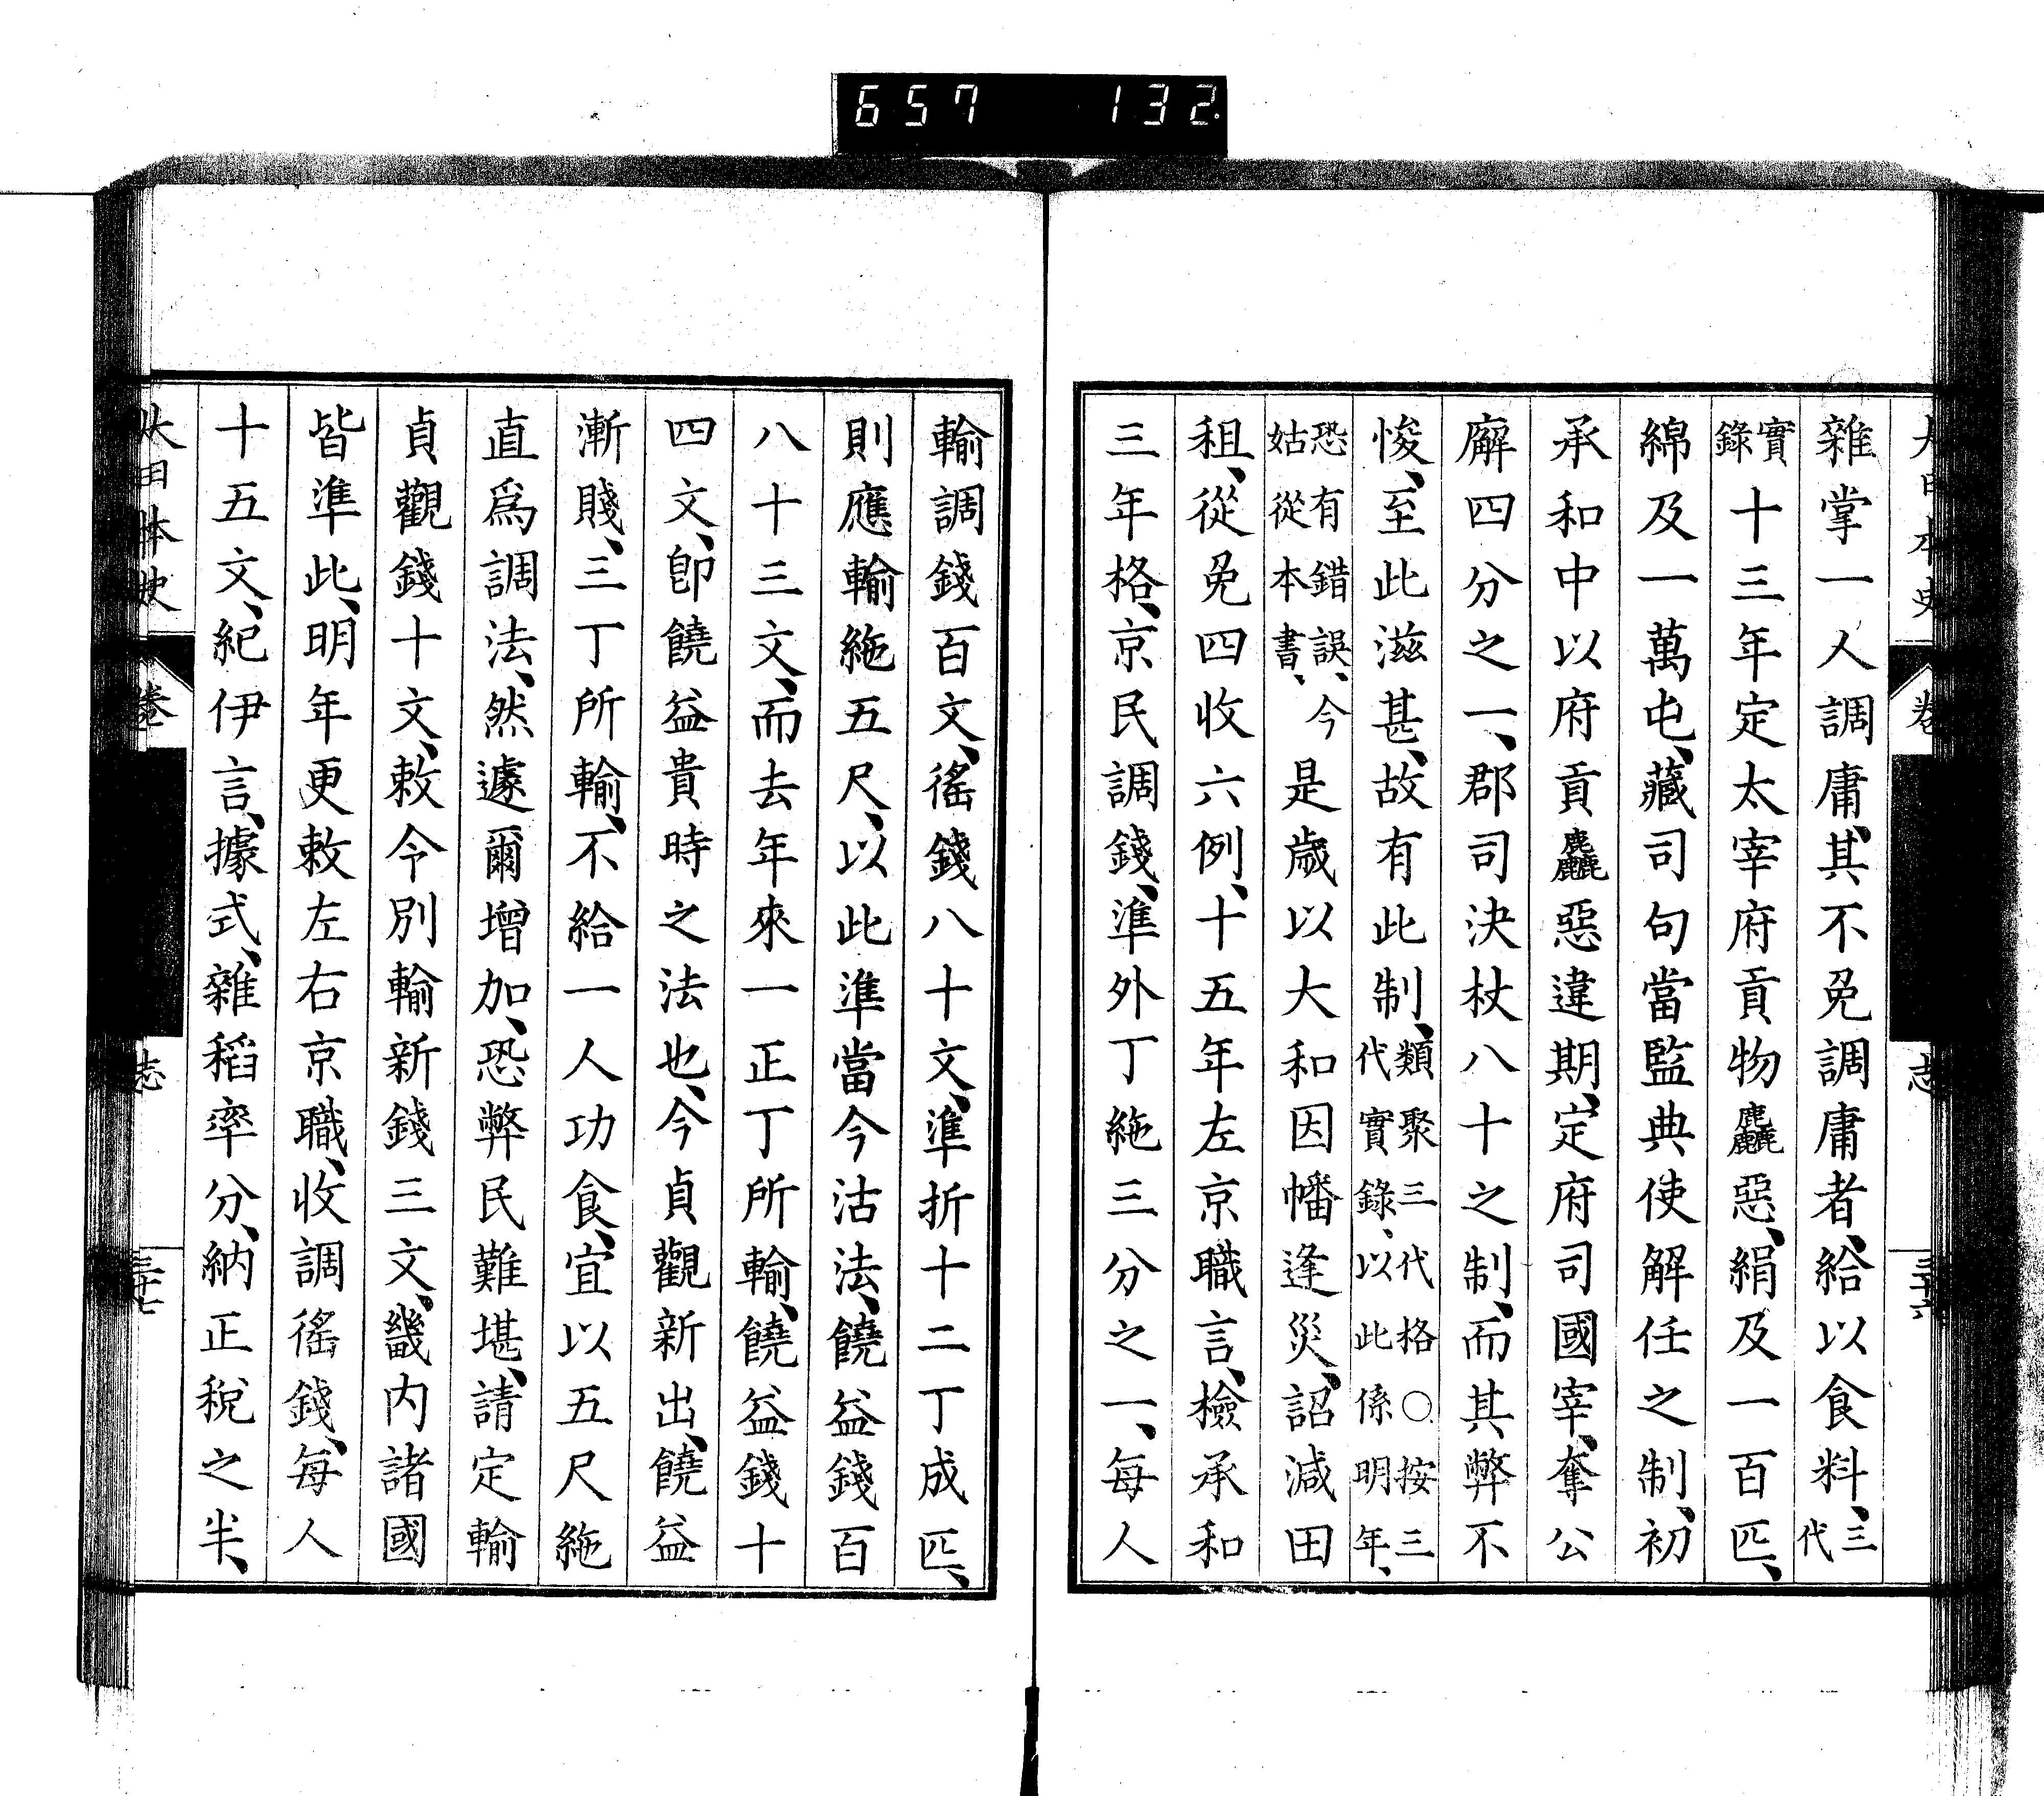 657 132
大日本史 卷 志 三十六
雜掌一人調庸、其不免調庸者、給以食料、三代
實錄十三年定太宰府貢物麤惡、絹及一百匹、
綿及一萬屯、藏司句當監典使解任之制、初
承和中以府貢麤惡違期、定府司國宰、奪公
廨四分之一、郡司決杖八十之制、而其弊不
悛、至此滋甚、故有此制、類聚三代格○按三代實錄、以此係明年、
恐有錯誤、今姑從本書、是歲以大和因幡逢災、詔減田
租、從免四收六例、十五年左京職言、檢承和
三年格、京民調錢、準外丁絁三分之一、每人
輸調錢百文、徭錢八十文、準折十二丁成匹、
則應輸絁五尺、以此準當今沽法、饒益錢百
八十三文、而去年來一正丁所輸、饒益錢十
四文、卽饒益貴時之法也、今貞觀新出、饒益
漸賤、三丁所輸、不給一人功食、宜以五尺絁
直爲調法、然遽爾增加、恐弊民難堪、請定輸
貞觀錢十文、敕令別輸新錢三文、畿内諸國
皆準此、明年更敕左右京職、收調徭錢、每人
十五文、紀伊言、據式、雜稻率分、納正稅之半、
大日本史 卷 志 三十七